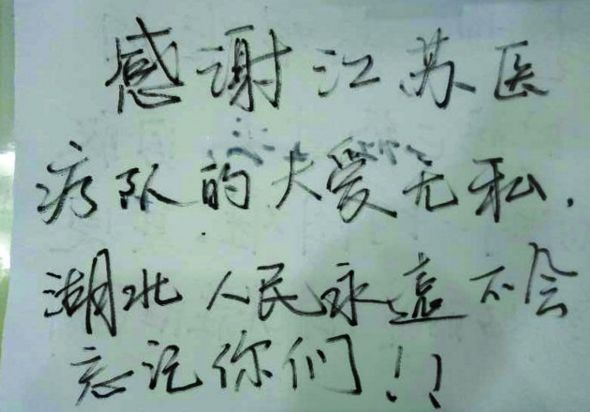 感谢江苏医
疗队的大爱无私.
湖北人民永远不会
忘记你们!!